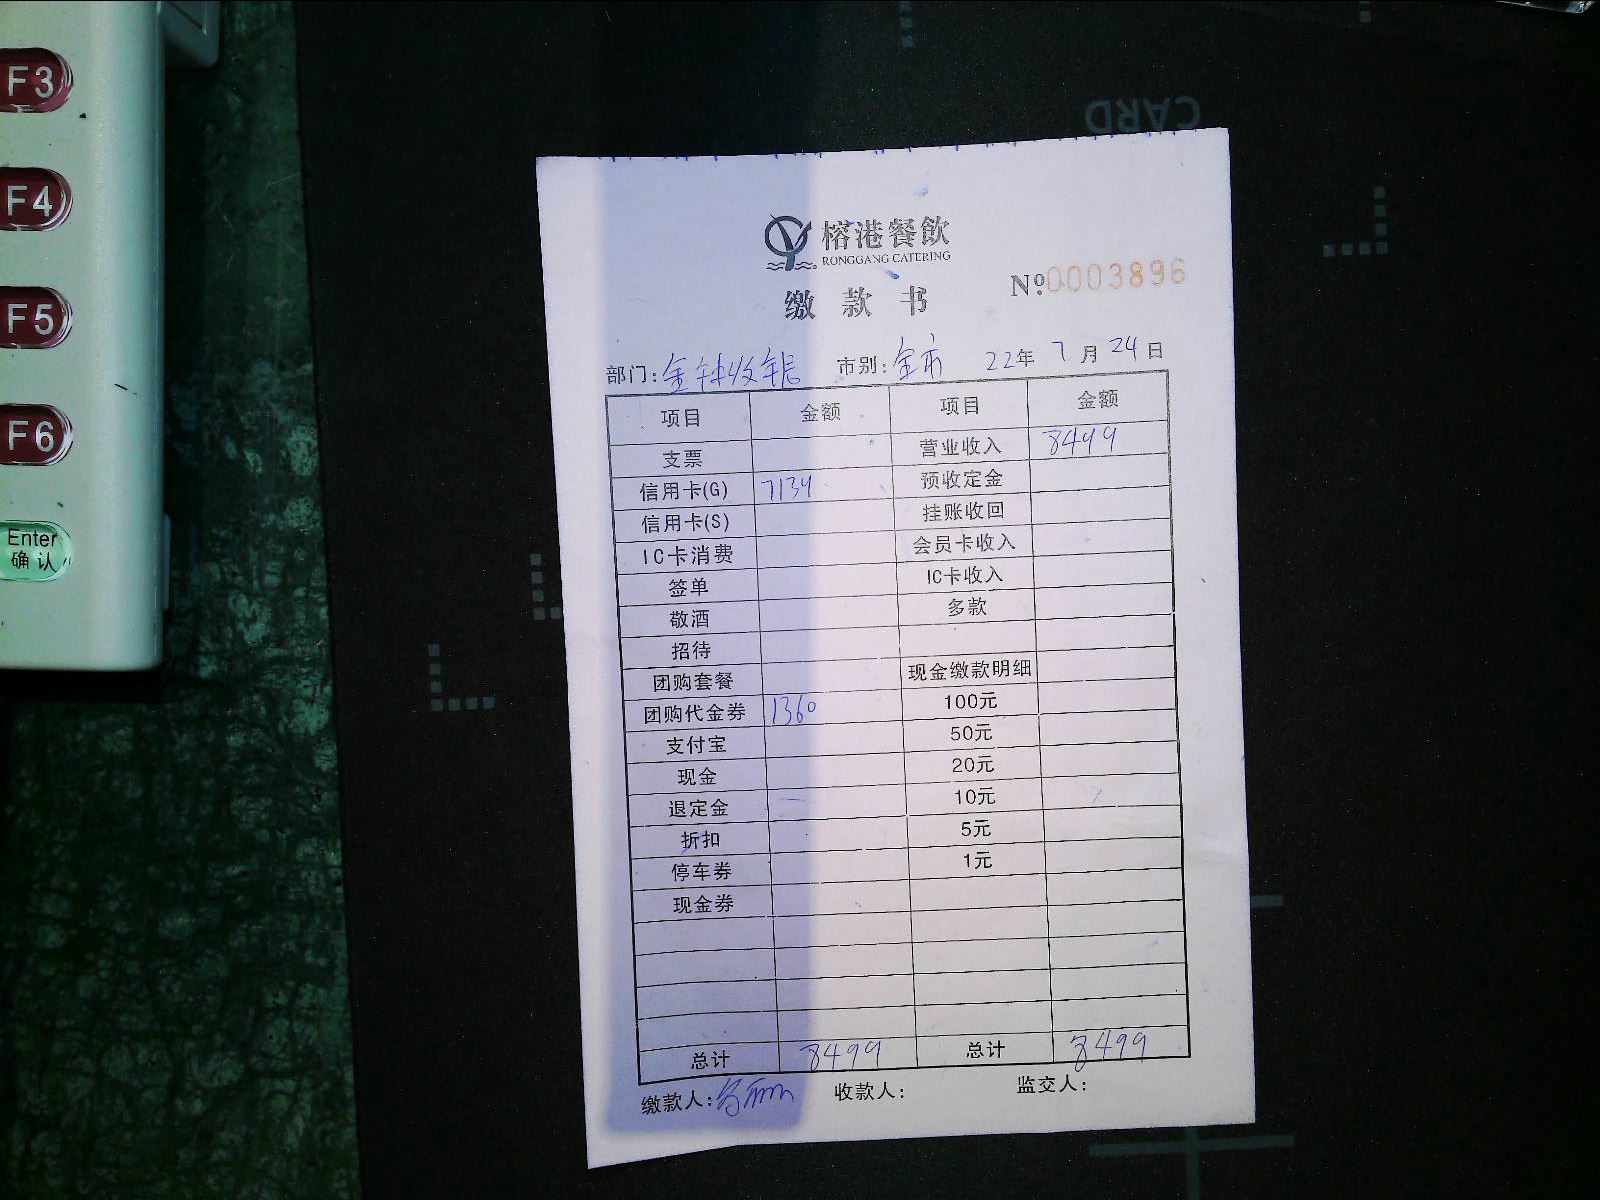 F3
F4
F5
F6
Enter
确认
CARD
榕港餐飲
RONGGANG CATERING
缴款书
№0003896
部门: 金钟收银 市别: 全市 22年 7月 24日
项目 金额 项目 金额
支票 营业收入 8499
信用卡(G) 7139 预收定金
信用卡(S) 挂账收回
IC卡消费 会员卡收入
签单 IC卡收入
敬酒 多款
招待
团购套餐 现金缴款明细
团购代金券 1360 100元
支付宝 50元
现金 20元
退定金 10元
折扣 5元
停车券 1元
现金券
总计 8499 总计 8499
缴款人: 收款人: 监交人: